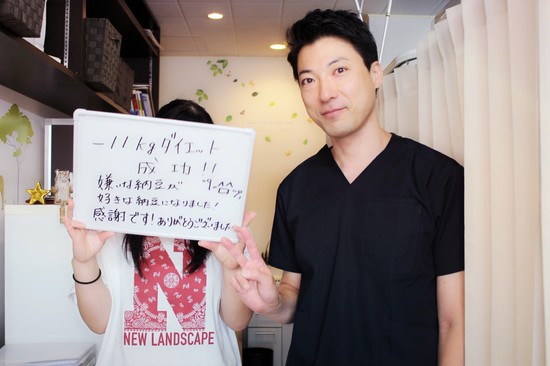 -11kgダイエット
成功!!
嫌いな納豆が
好きな納豆になりました!
感謝です!ありがとうございました
N
NEW LANDSCAPE